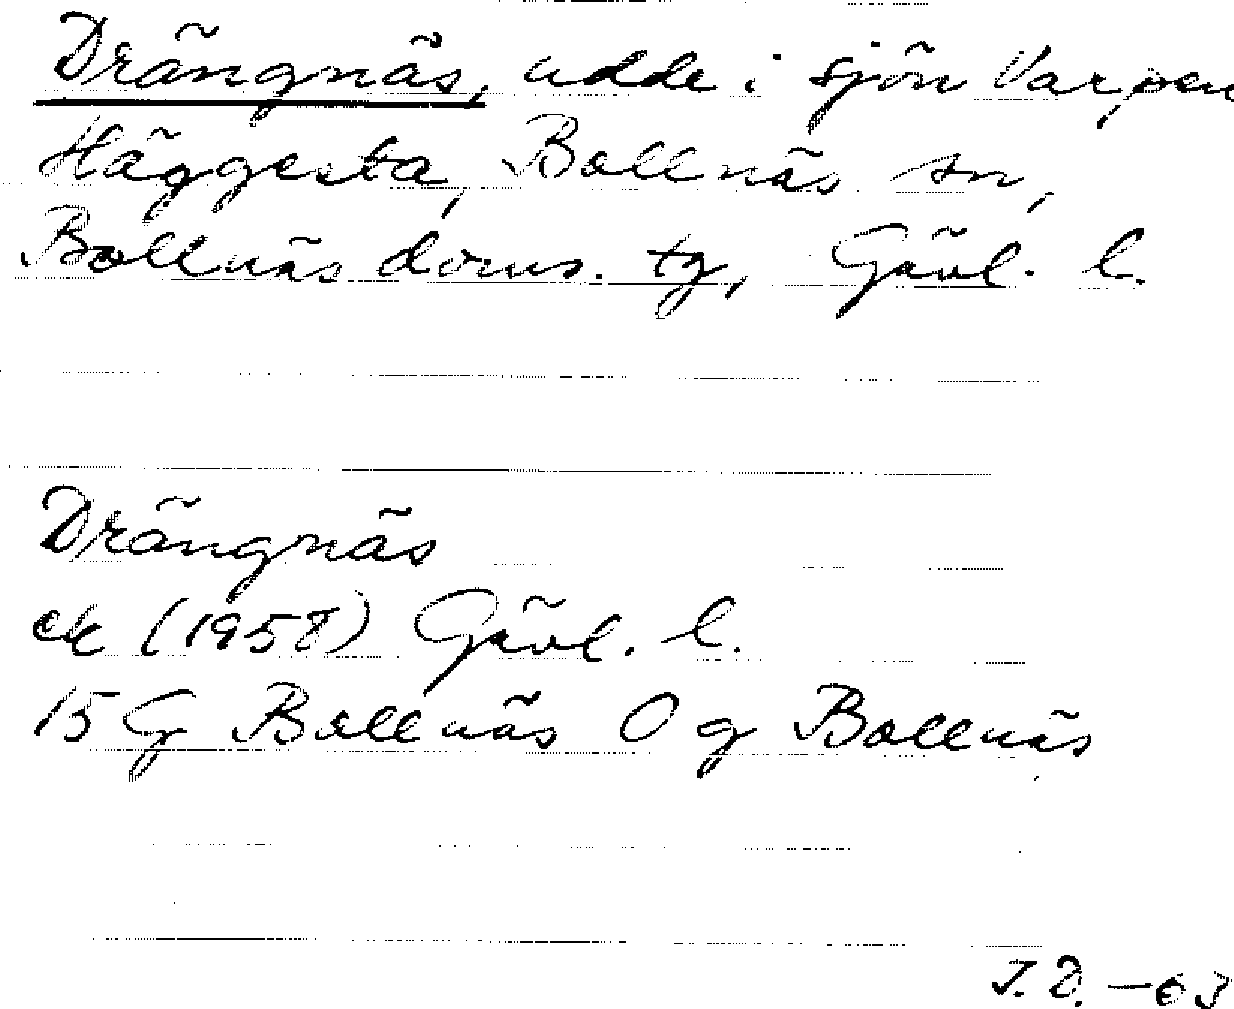 Drängnäs, udde i sjön Varpen
Häggesta, Bollnäs sn,
Bollnäs doms. tg, Gävl. l.
Drängnäs
ek (1958) Gävl. l.
15 G Bollnäs O g Bollnäs
J. D. -63